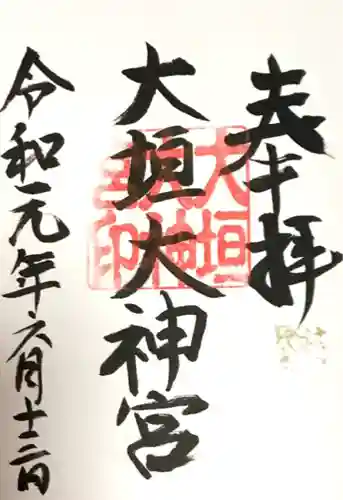 奉拝
大垣大神宮
大垣大神宮印
令和元年六月十三日